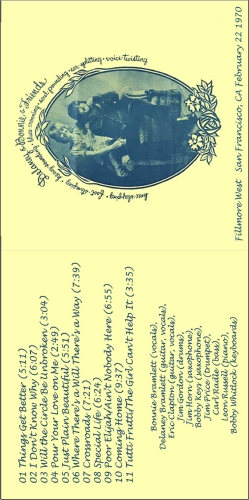 Delaney, Bonnie & Friends
Fillmore West San Francisco, CA February 22 1970
01 Things Get Better (5:11)
02 I Don't Know Why (6:07)
03 Will the Circle Be Unbroken (3:04)
04 Pour Your Love on Me (2:49)
05 Just Plain Beautiful (5:51)
06 Where There's a Will There's a Way (7:39)
07 Crossroad (7:21)
08 Special Life (6:24)
09 Poor Elijah/Ain't Nobody Here (6:55)
10 Coming Home (9:37)
11 Tutti Frutti/The Girl Can't Help It (3:35)
Bonnie Bramlett (vocals),
Delaney Bramlett (guitar, vocals),
Eric Clapton (guitar, vocals),
Jim Gordon (drums),
Jim Horn (saxophone),
Bobby Keys (saxophone),
Jim Price (trumpet),
Carl Radle (bass),
Leon Russell (piano),
Bobby Whitlock (keyboards)